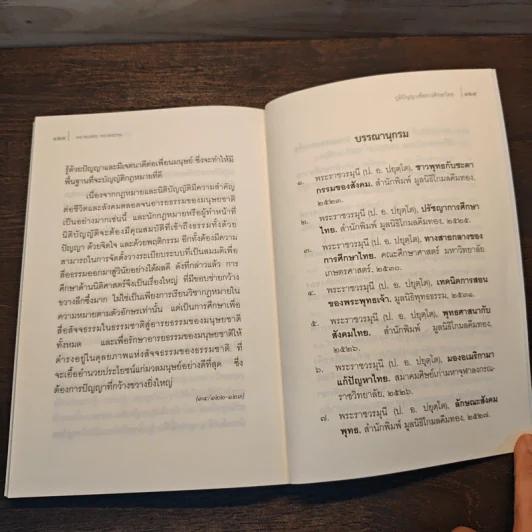 รู้ด้วยปัญญาและมีเจตนาดีต่อเพื่อนมนุษย์ ซึ่งจะทำให้มี
พื้นฐานที่จะบัญญัติกฎหมายที่ดี
เนื่องจากกฎหมายและนิติบัญญัติมีความสำคัญ
ต่อชีวิตและสังคมตลอดจนอารยธรรมของมนุษยชาติ
เป็นอย่างมากเช่นนี้ และนักกฎหมายหรือผู้ทำหน้าที่
นิติบัญญัติจะต้องมีคุณสมบัติที่เข้าถึงธรรมทั้งด้วย
ปัญญา ด้วยจิตใจ และด้วยพฤติกรรม อีกทั้งต้องมีความ
สามารถในการจัดตั้งวางระเบียบระบบที่เป็นสมมติเพื่อ
สื่อธรรมออกมาสู่วินัยอย่างได้ผลดี ดังที่กล่าวแล้ว การ
ศึกษาด้านนิติศาสตร์จึงเป็นเรื่องใหญ่ ที่มีขอบข่ายกว้าง
ขวางลึกซึ้งมาก ไม่ใช่เป็นเพียงการเรียนวิชากฎหมายใน
ความหมายตามตัวอักษรเท่านั้น แต่เป็นการศึกษาเพื่อ
สื่อสัจธรรมในธรรมชาติสู่อารยธรรมของมนุษยชาติ
ทั้งหมด และเพื่อรักษาอารยธรรมของมนุษยชาติให้
ดำรงอยู่ในดุลยภาพแห่งสัจธรรมของธรรมชาติ ที่
จะเอื้ออำนวยประโยชน์แก่มวลมนุษย์อย่างดีที่สุด ซึ่ง
ต้องการปัญญาที่กว้างขวางยิ่งใหญ่
(๓๕/๑๒๒-๑๒๓)
ภูมิปัญญาเพื่อการศึกษาไทย ๑๒๙
บรรณานุกรม
๑. พระราชวรมุนี (ป. อ. ปยุตฺโต), ชาวพุทธกับชะตา
กรรมของสังคม. สำนักพิมพ์ มูลนิธิโกมลคีมทอง,
๒๕๒๓.
๒. พระราชวรมุนี (ป. อ. ปยุตฺโต), ปรัชญาการศึกษา
ไทย. สำนักพิมพ์ มูลนิธิโกมลคีมทอง, ๒๕๒๕.
๓. พระราชวรมุนี (ป. อ. ปยุตฺโต), ทางสายกลางของ
การศึกษาไทย. คณะศึกษาศาสตร์ มหาวิทยาลัย
เกษตรศาสตร์, ๒๕๓๐.
๔. พระราชวรมุนี (ป. อ. ปยุตฺโต), เทคนิคการสอน
ของพระพุทธเจ้า. มูลนิธิพุทธธรรม, ๒๕๓๑.
๕. พระราชวรมุนี (ป. อ. ปยุตฺโต), พุทธศาสนากับ
สังคมไทย. สำนักพิมพ์ มูลนิธิโกมลคีมทอง,
๒๕๒๖.
๖. พระราชวรมุนี (ป. อ. ปยุตฺโต), มองอเมริกามา
แก้ปัญหาไทย. สมาคมศิษย์เก่ามหาจุฬาลงกรณ-
ราชวิทยาลัย, ๒๕๒๖.
๗. พระราชวรมุนี (ป. อ. ปยุตฺโต), ลักษณะสังคม
พุทธ. สำนักพิมพ์ มูลนิธิโกมลคีมทอง, ๒๕๒๗.